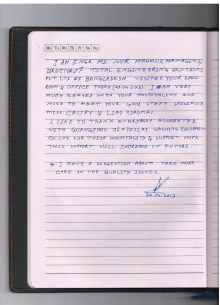 Mo Tu We Th Fr Sa Su
I AM ENGR. MD. NUR MAHMUD MANAGING
DIRECTOR TOTAL ENGINEERING
PVT LTD OF BANGLADESH VISITED YOUR SHOW
ROOM & OFFICE TODAY. I AM VERY
MUCH PLEASED WITH YOUR HOSPITALITY AND
NICE TO MEET YOUR GOOD STAFF SPECIALLY
MISS
I LIKE TO THANK EVERYBODY ASSOCIATED
WITH GUANGZHOU EQUIPMENT
CO LTD FOR THESE HOSPITALITY & SUPPORT. HOPE
THIS SUPPORT WILL INCREASE IN FUTURE
* I HAVE A SUGGESTION ABOUT TAKE MORE
CARE ON THE QUALITY ISSUES.